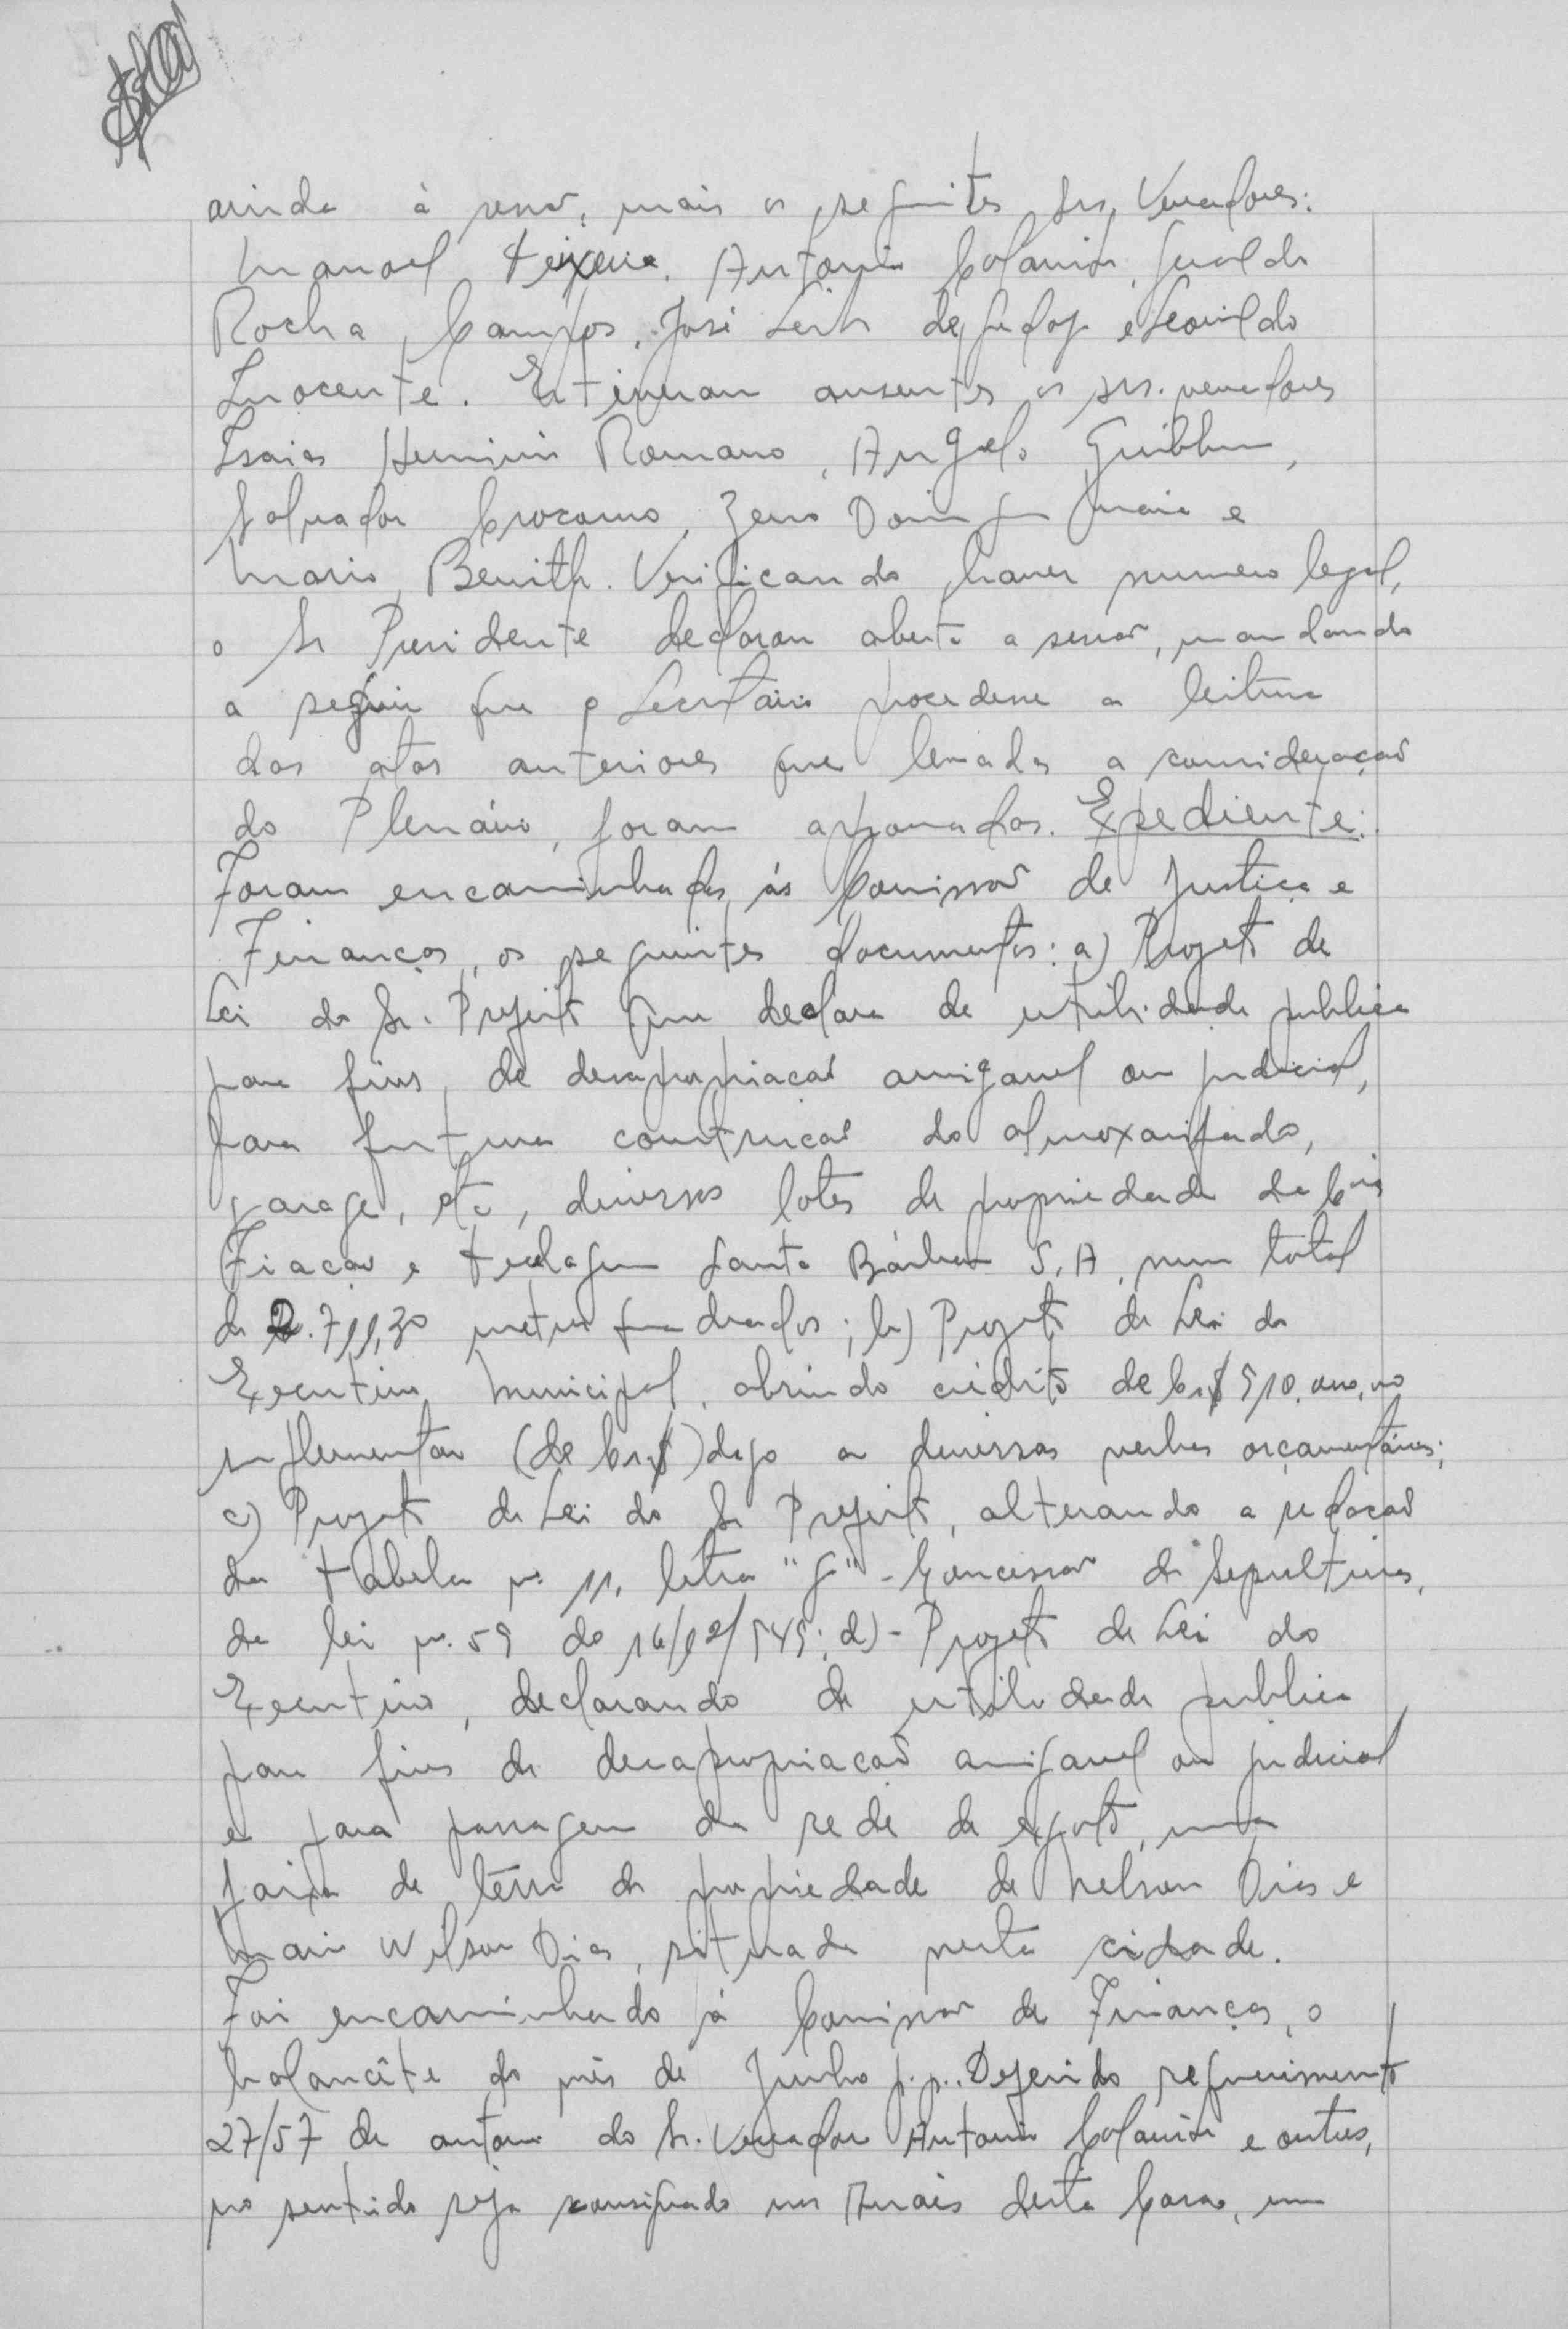 ainda à sessão, mais os seguintes Srs. Vereadores:
Manoel Teixeira, Antonio Colamin, Geraldo
Rocha Campos, José Leite de e Leonildo
Inocente. Estiveram ausentes os srs. vereadores
Isaias Herminio Romano, Angelo Guibbin,
Salvador Crocomo, Zeno Maia e
Mario Benith. Verificando haver numero legal,
o Sr Presidente declarou aberta a sessão, mandando
a seguir que o Secretário procedesse a leitura
das atas anteriores que levadas a consideração
do Plenário, foram aprovadas. Expediente:
Foram encaminhados às Comissão de Justiça e
Finanças, os seguintes documentos: a) Projeto de
Lei do Sr. Prefeito que declara de utilidade publica
para fins, de desapropriacão amigavel ou judicial,
para futura construcão do almoxarifado,
garage, etc, diversos lotes de propriedade da Cia
Fiacão e tecelagem Santa Bárbara S.A, num total
de 2.711,30 metros quadrados; b) Projeto de Lei do
Executivo Municipal, abrindo crédito de Cr$ 510.000,00
suplementar (de Cr$) digo a diversas verbas orçamentárias;
c) Projeto de Lei do Sr Prefeito, alterando a redacão
da tabela nº 11, letra "G" - Concessão de Sepulturas,
da lei nº. 59 do 16/12/949; d) - Projeto de Lei do
Executivo, declarando de utilidade publica
para fins de desapropriacão amigavel ou judicial
e para passagem da rede de esgoto, uma
faixa de terra de propriedade de Nelson Dias e
Mario Wilson Dias, situada nesta cidade.
Foi encaminhado à Comissão de Finanças, o
balancête do mês de Junho p.p.. Deferido requerimento
27/57 de autoria do Sr. Vereador Antonio Colamin e outros,
no sentido seja consignado nos Anais desta Casa, um